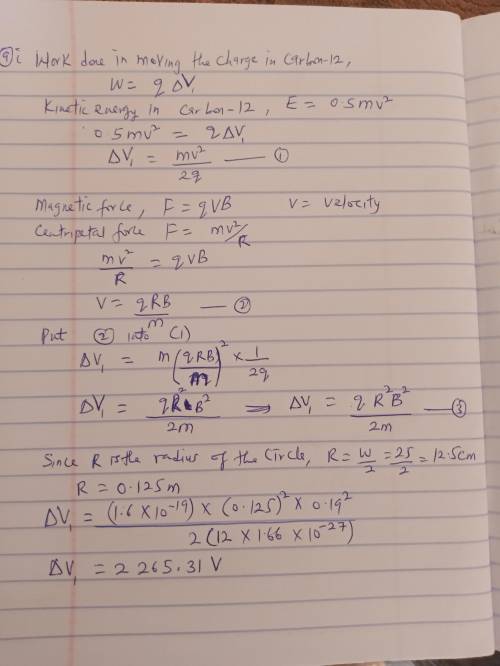 9i Work done in moving the charge in Carbon-12,
W = q ΔV₁
Kinetic energy in Carbon-12, E = 0.5mv²
0.5mv² = qΔV₁
ΔV₁ = mv²/2q —— ①
Magnetic force, F = qVB V = Velocity
Centripetal force F = mv²/R
mv²/R = qVB
V = qRB/m —— ②
Put ② into (1)
ΔV₁ = m(qRB/m)² × 1/2q
ΔV₁ = qR²B²/2m ⟹ ΔV₁ = q R²B²/2m —— ③
Since R is the radius of the Circle, R = W/2 = 25/2 = 12.5cm
R = 0.125m
ΔV₁ = (1.6 × 10⁻¹⁹) × (0.125)² × 0.19²/2(12 × 1.66 × 10⁻²⁷)
ΔV₁ = 2 265.31 V